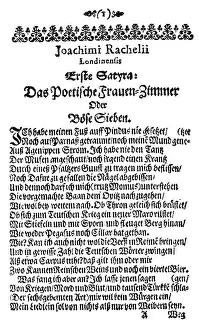 (1)
Joachimi Rachelii
Londinensis
Erste Satyra:
Das Poetische Frauen-Zimmer
Oder
Böse Sieben.
ICh habe meinen Fuß auff Pindus nie gesetzet/
Noch auff Parnaß getraumt noch meinē Mund gene-
Auß Aganippen Strom. Ich habe nie den Tantz
Der Musen angeschaut/noch irgend einen Krantz
Durch eines Pfaltzers Gunst zu tragen mich beflissen/
Noch Dafür zu gefallen die Nägel abgebissen/
Und dennoch darf ich mich (trutz Momus) unterstehen
Die vorgemachte Baan dem Opitz nach zugehen/
Wie/wol bey wettem nach. Ob Thron gleich sich brüstet/
Ob sich zum Teutschen Krieg ein neuer Maro rüstet/
Mit Stiefeln und mit Sporn und fleuget Berg hinan/
Wie weder Pegasus noch Silar hat gethan.
Wie? Kan ich auch nicht wol die Verß in Reime bringen/
Und in gewisse Zahl die Teutschen Wörter zwingen?
Ist etwa Carpus mehr? daß gilt ihm oder mir
Zwo Kannen Reinschen Weins und noch ein viertel Bier.
Was fang ich aber an? Ich lasse jenen sagen
Von Krieg und Mord und Blut/und tausend Türckē schla-
(Der sechsgebeinten Art) mir wil beim Würgen ein/
Mein Liedlein sol von nichts als nur von Weibern seyn.
A
Weg